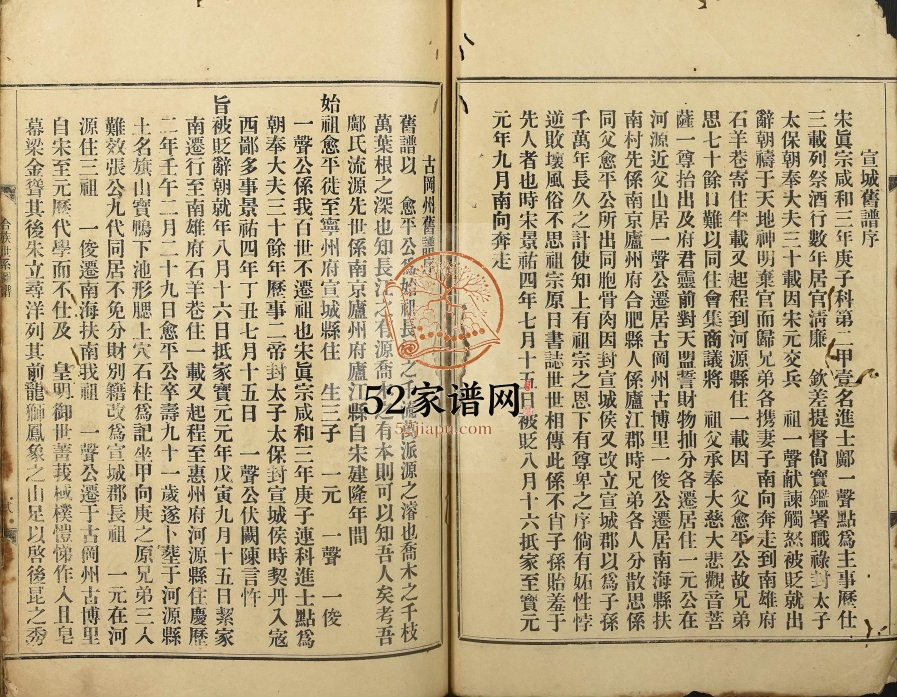 宣城舊譜序
宋眞宗咸和三年庚子科第二甲壹名進士鄺一聲點爲主事歷仕
三載列祭酒行數年居官淸廉 欽差提督尙寶鑑署職祿封太子
太保朝奉大夫三十載因宋元交兵 祖一聲献諫觸怒被貶就出
辭朝禱于天地神明棄官而歸兄弟各携妻子南向奔走到南雄府
石羊巷寄住半載又起程到河源縣住一載因 父愈平公故兄弟
思七十餘口難以同住會集商議將 祖父承奉大慈大悲觀音菩
薩一尊抬出及府君靈前對天盟誓財物抽分各遷居住一元公在
河源近父山居一聲公遷居古岡州古博里一俊公遷居南海縣扶
南村先係南京廬州府合肥縣人係廬江郡時兄弟各人分散思係
同父愈平公所出同胞骨肉因封宣城侯又改立宣城郡以爲子孫
千萬年長久之計使知上有祖宗之恩下有尊卑之序倘有妬性悖
逆敗壞風俗不思祖宗原日書誌世世相傳此係不肖子孫貽羞于
先人者也時宋景祐四年七月十五日被貶八月十六抵家至寶元
元年九月南向奔走
古岡州舊譜序
舊譜以 愈平公爲始祖長江之千流萬派源之濬也喬木之千枝
萬葉根之深也知長江之有源喬木之有本則可以知吾人矣考吾
鄺氏流源先世係南京廬州府廬江縣自朱建隆年間
始祖愈平徙至寧州府宣城縣住 生三子 一元 一聲 一俊
一聲公係我百世不遷祖也宋眞宗咸和三年庚子連科進士點爲
朝奉大夫三十餘年歷事二帝封太子太保封宣城侯時契丹入寇
西鄙多事景祐四年丁丑七月十五日 一聲公伏闕陳言忤
旨被貶辭朝就年八月十六日抵家寶元元年戊寅九月十五日絜家
南遷行至南雄府石羊巷住一載又起程至惠州府河源縣住慶歷
二年壬午二月二十九日愈平公卒壽九十一歲遂卜葬于河源縣
土名旗山寶鴨下池形腮上穴石柱爲記坐甲向庚之原兄弟三人
難效張公九代同居不免分財別籍改爲宣城郡長祖 一元在河
源住三祖 一俊遷南海扶南我祖 一聲公遷于古岡州古博里
自宋至元歷代學而不仕及 皇明御世菁莪棫樸愷悌作人且皂
幕梁金聳其後朱立尋洋列其前龍獅鳳象之山足以啓後昆之秀
台族世系譜
52家谱网
52jiapu.com